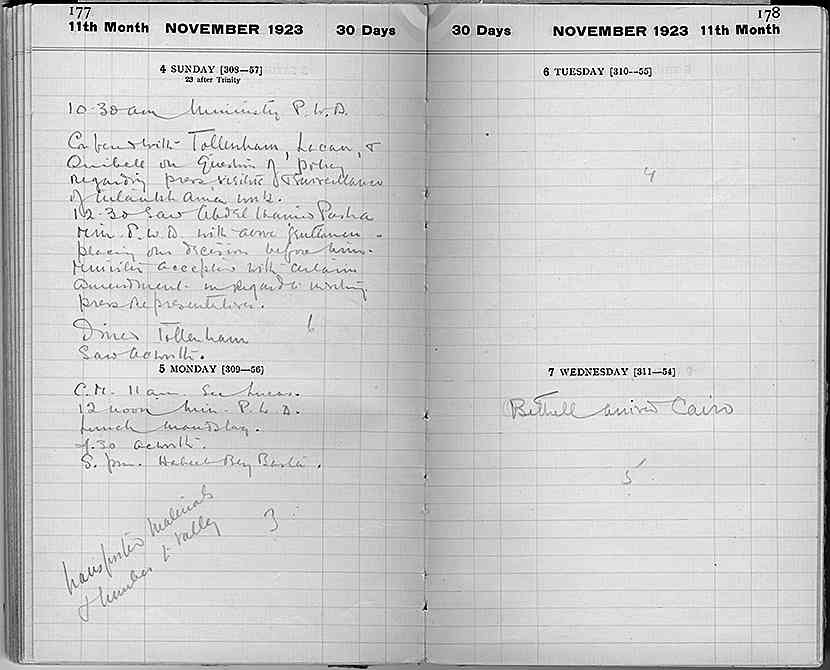 177
11th Month NOVEMBER 1923 30 Days
4 SUNDAY [308—57]
23 after Trinity
10-30 am Ministry P.W.D.
Conferred with Tottenham, Lucas, &
Quibell on question of policy
regarding press visitors & surveillance
of work.
12-30 Saw Abdel Hamid Pasha
Min. P.W.D. with above gentlemen -
placing our decision before him.
Minister accepted with certain
amendment in regard to
press representatives.
Dined Tottenham 6
Saw Acworth.
5 MONDAY [309—56]
C.M. 11 am. See Lucas.
12 noon Min. P.W.D.
Lunch
4.30 Acworth.
8. pm. Bey
transported materials
& timber to valley 3
178
30 Days NOVEMBER 1923 11th Month
6 TUESDAY [310—55]
4
7 WEDNESDAY [311—54]
Bethell arrived Cairo
5